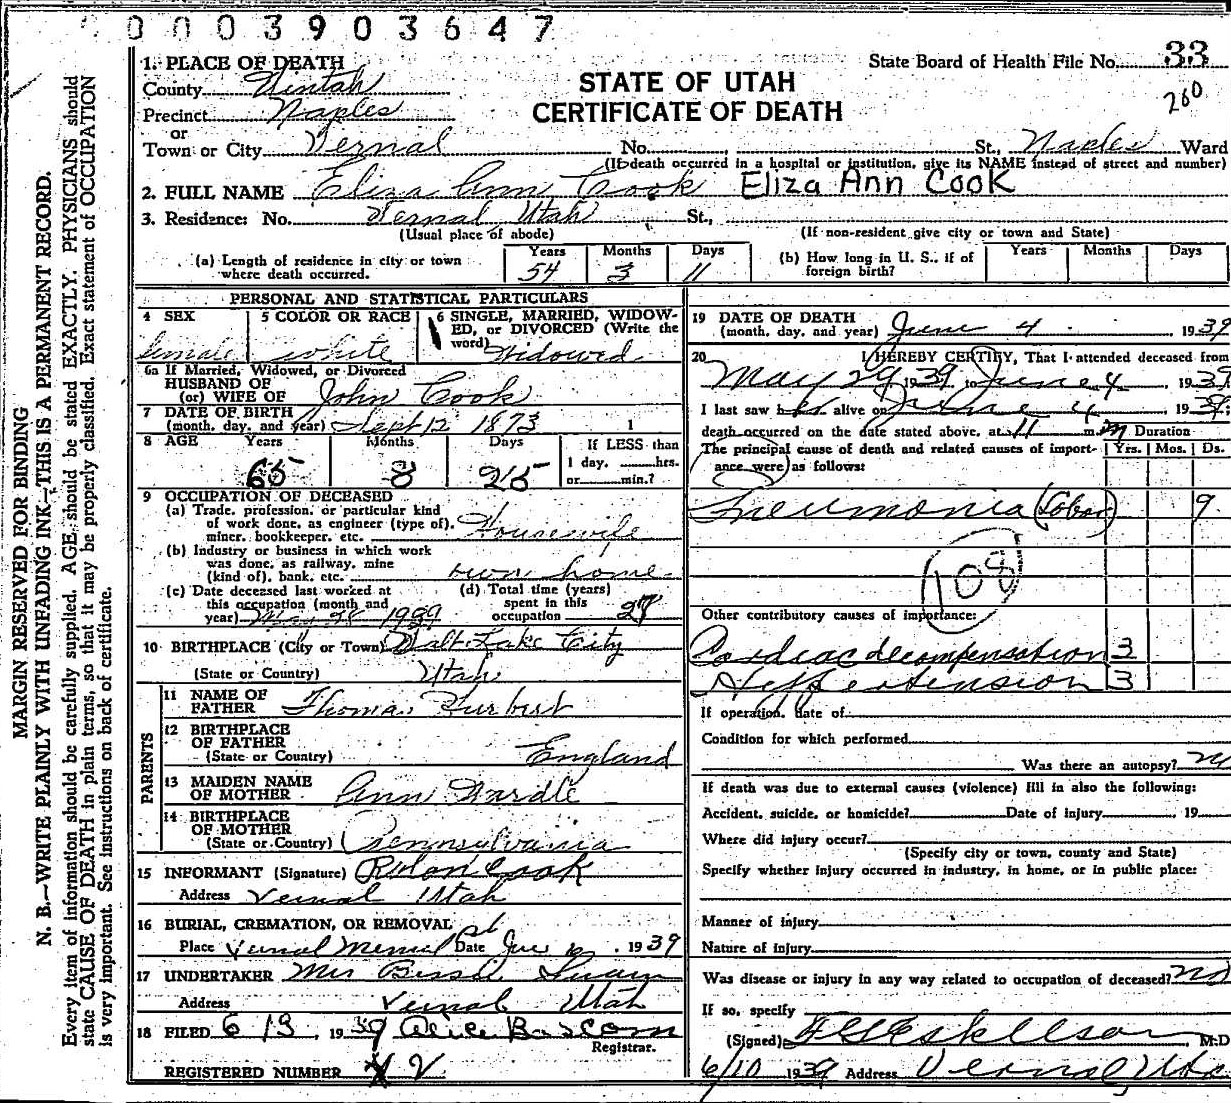 0003903647
MARGIN RESERVED FOR BINDING
N. B.—WRITE PLAINLY WITH UNFADING INK—THIS IS A PERMANENT RECORD.
Every item of information should be carefully supplied. AGE should be stated EXACTLY. PHYSICIANS should
state CAUSE OF DEATH in plain terms, so that it may be properly classified. Exact statement of OCCUPATION
is very important. See instructions on back of certificate.
State Board of Health File No. 33
260
STATE OF UTAH
CERTIFICATE OF DEATH
1. PLACE OF DEATH
County Uintah
Precinct Naples
or
Town or City Vernal No. St., Naples Ward
(If death occurred in a hospital or institution, give its NAME instead of street and number)
2. FULL NAME Eliza Ann Cook Eliza Ann Cook
3. Residence: No. Vernal Utah St.,
(Usual place of abode) (If non-resident give city or town and State)
(a) Length of residence in city or town where death occurred. Years 54 Months 3 Days 11
(b) How long in U. S., if of foreign birth? Years Months Days
PERSONAL AND STATISTICAL PARTICULARS
4 SEX female
5 COLOR OR RACE white
6 SINGLE, MARRIED, WIDOWED, or DIVORCED (Write the word) Widowed
6a If Married, Widowed, or Divorced
HUSBAND OF
(or) WIFE OF John Cook
7 DATE OF BIRTH
(month, day, and year) Sept 12 1873
8 AGE Years 65 Months 8 Days If LESS than
1 day, hrs.
or min.?
9 OCCUPATION OF DECEASED
(a) Trade, profession, or particular kind
of work done, as engineer (type of),
miner, bookkeeper, etc. Housewife
(b) Industry or business in which work
was done, as railway, mine
(kind of), bank, etc. own home
(c) Date deceased last worked at
this occupation (month and
year) May 1939
(d) Total time (years)
spent in this
occupation 27
10 BIRTHPLACE (City or Town) Salt Lake City
(State or Country) Utah
PARENTS
11 NAME OF
FATHER Thomas
12 BIRTHPLACE
OF FATHER
(State or Country) England
13 MAIDEN NAME
OF MOTHER Ann Wardle
14 BIRTHPLACE
OF MOTHER
(State or Country) Pennsylvania
15 INFORMANT (Signature) Cook
Address Vernal Utah
16 BURIAL, CREMATION, OR REMOVAL
Place Vernal Date 1939
17 UNDERTAKER Mrs Swain
Address Vernal Utah
18 FILED 6 13, 1939 Alice Bascom
Registrar.
REGISTERED NUMBER
19 DATE OF DEATH
(month, day, and year) June 4 1939
20 I HEREBY CERTIFY, That I attended deceased from
May 29, 1939, to June 4, 1939
I last saw her alive on June 4, 1939
death occurred on the date stated above, at 11 m. Duration
The principal cause of death and related causes of import- Yrs. Mos. Ds.
ance were as follows:
Pneumonia (Lobar) 9
108
Other contributory causes of importance:
Cardiac decompensation 3
3
If operation, date of
Condition for which performed
Was there an autopsy? no
If death was due to external causes (violence) fill in also the following:
Accident, suicide, or homicide? Date of injury , 19
Where did injury occur?
(Specify city or town, county and State)
Specify whether injury occurred in industry, in home, or in public place:
Manner of injury
Nature of injury
Was disease or injury in any way related to occupation of deceased? no
If so, specify
(Signed) M.D
6/10 1939 Address Vernal, Utah